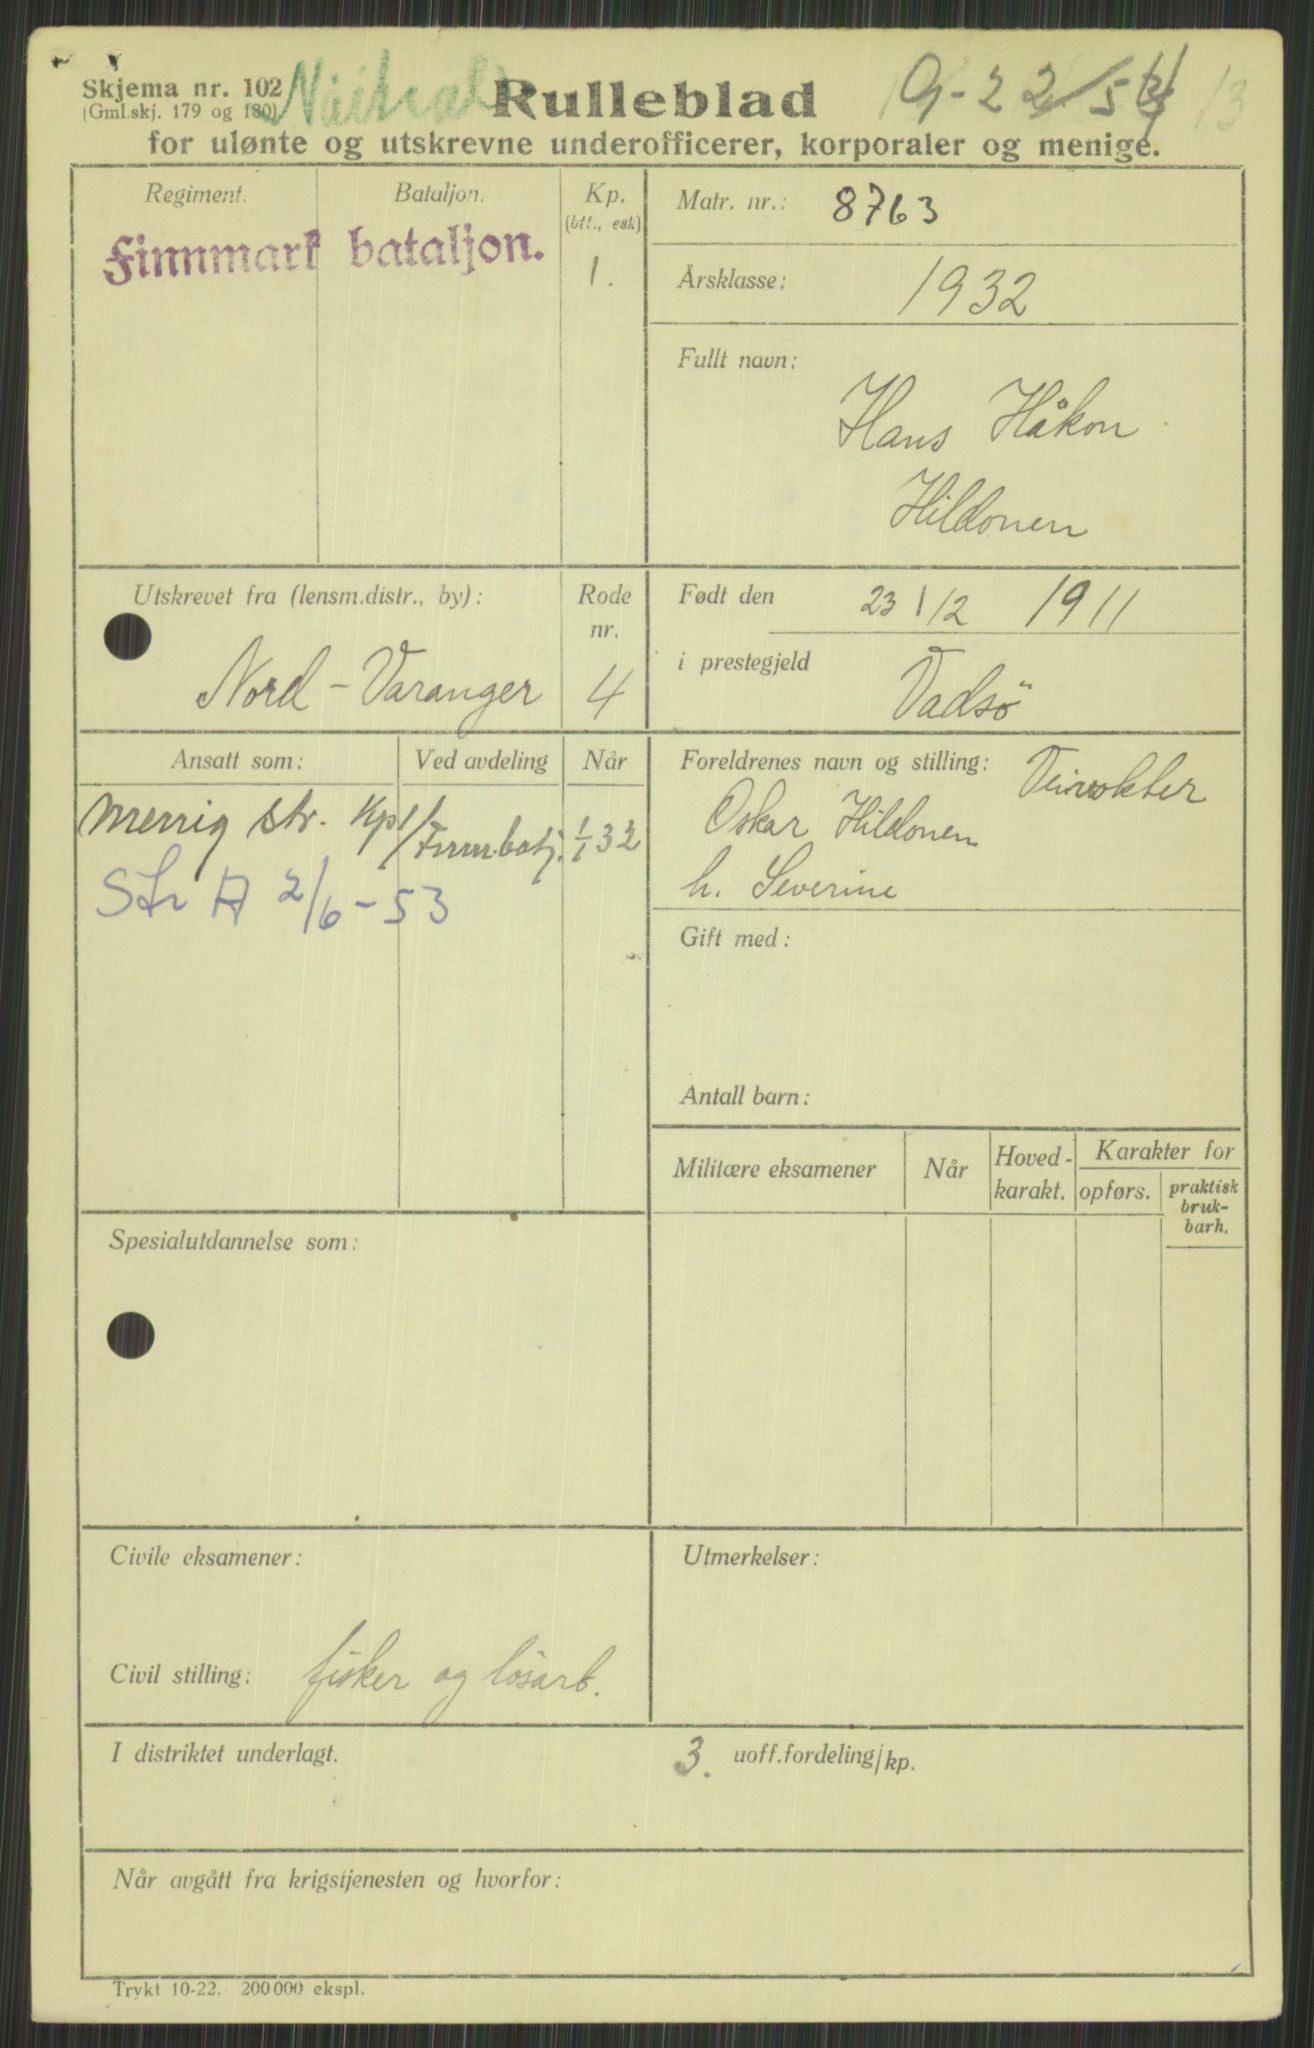 Skjema nr. 102
(Gml.skj. 179 og 180)
Rulleblad
for ulønte og utskrevne underofficerer, korporaler og menige.
Regiment.
Bataljon.
Kp.
(btt., esk)
Finnmark bataljon.
1.
Matr. nr.: 8763
Årsklasse: 1932
Fullt navn:
Hans Håkon
Hildonen
Utskrevet fra (lensm.distr., by):
Nord-Varanger
Rode
nr.
4
Født den 23/12 1911
i prestegjeld Vadsö
Ansatt som:
Ved avdeling
Når
Menig str. Kp 1/Finn.batj. 1/1 32
Str 2/6-53
Foreldrenes navn og stilling: Veivokter
Oskar Hildonen
h. Severine
Gift med:
Antall barn:
Militære eksamener
Når
Hoved-
karakt.
Karakter for
opførs.
praktisk
bruk-
barh.
Spesialutdannelse som:
Civile eksamener:
Civil stilling: fisker og lösarb.
Utmerkelser:
I distriktet underlagt.
3. uoff.fordeling/kp.
Når avgått fra krigstjenesten og hvorfor:
Trykt 10-22. 200 000 ekspl.